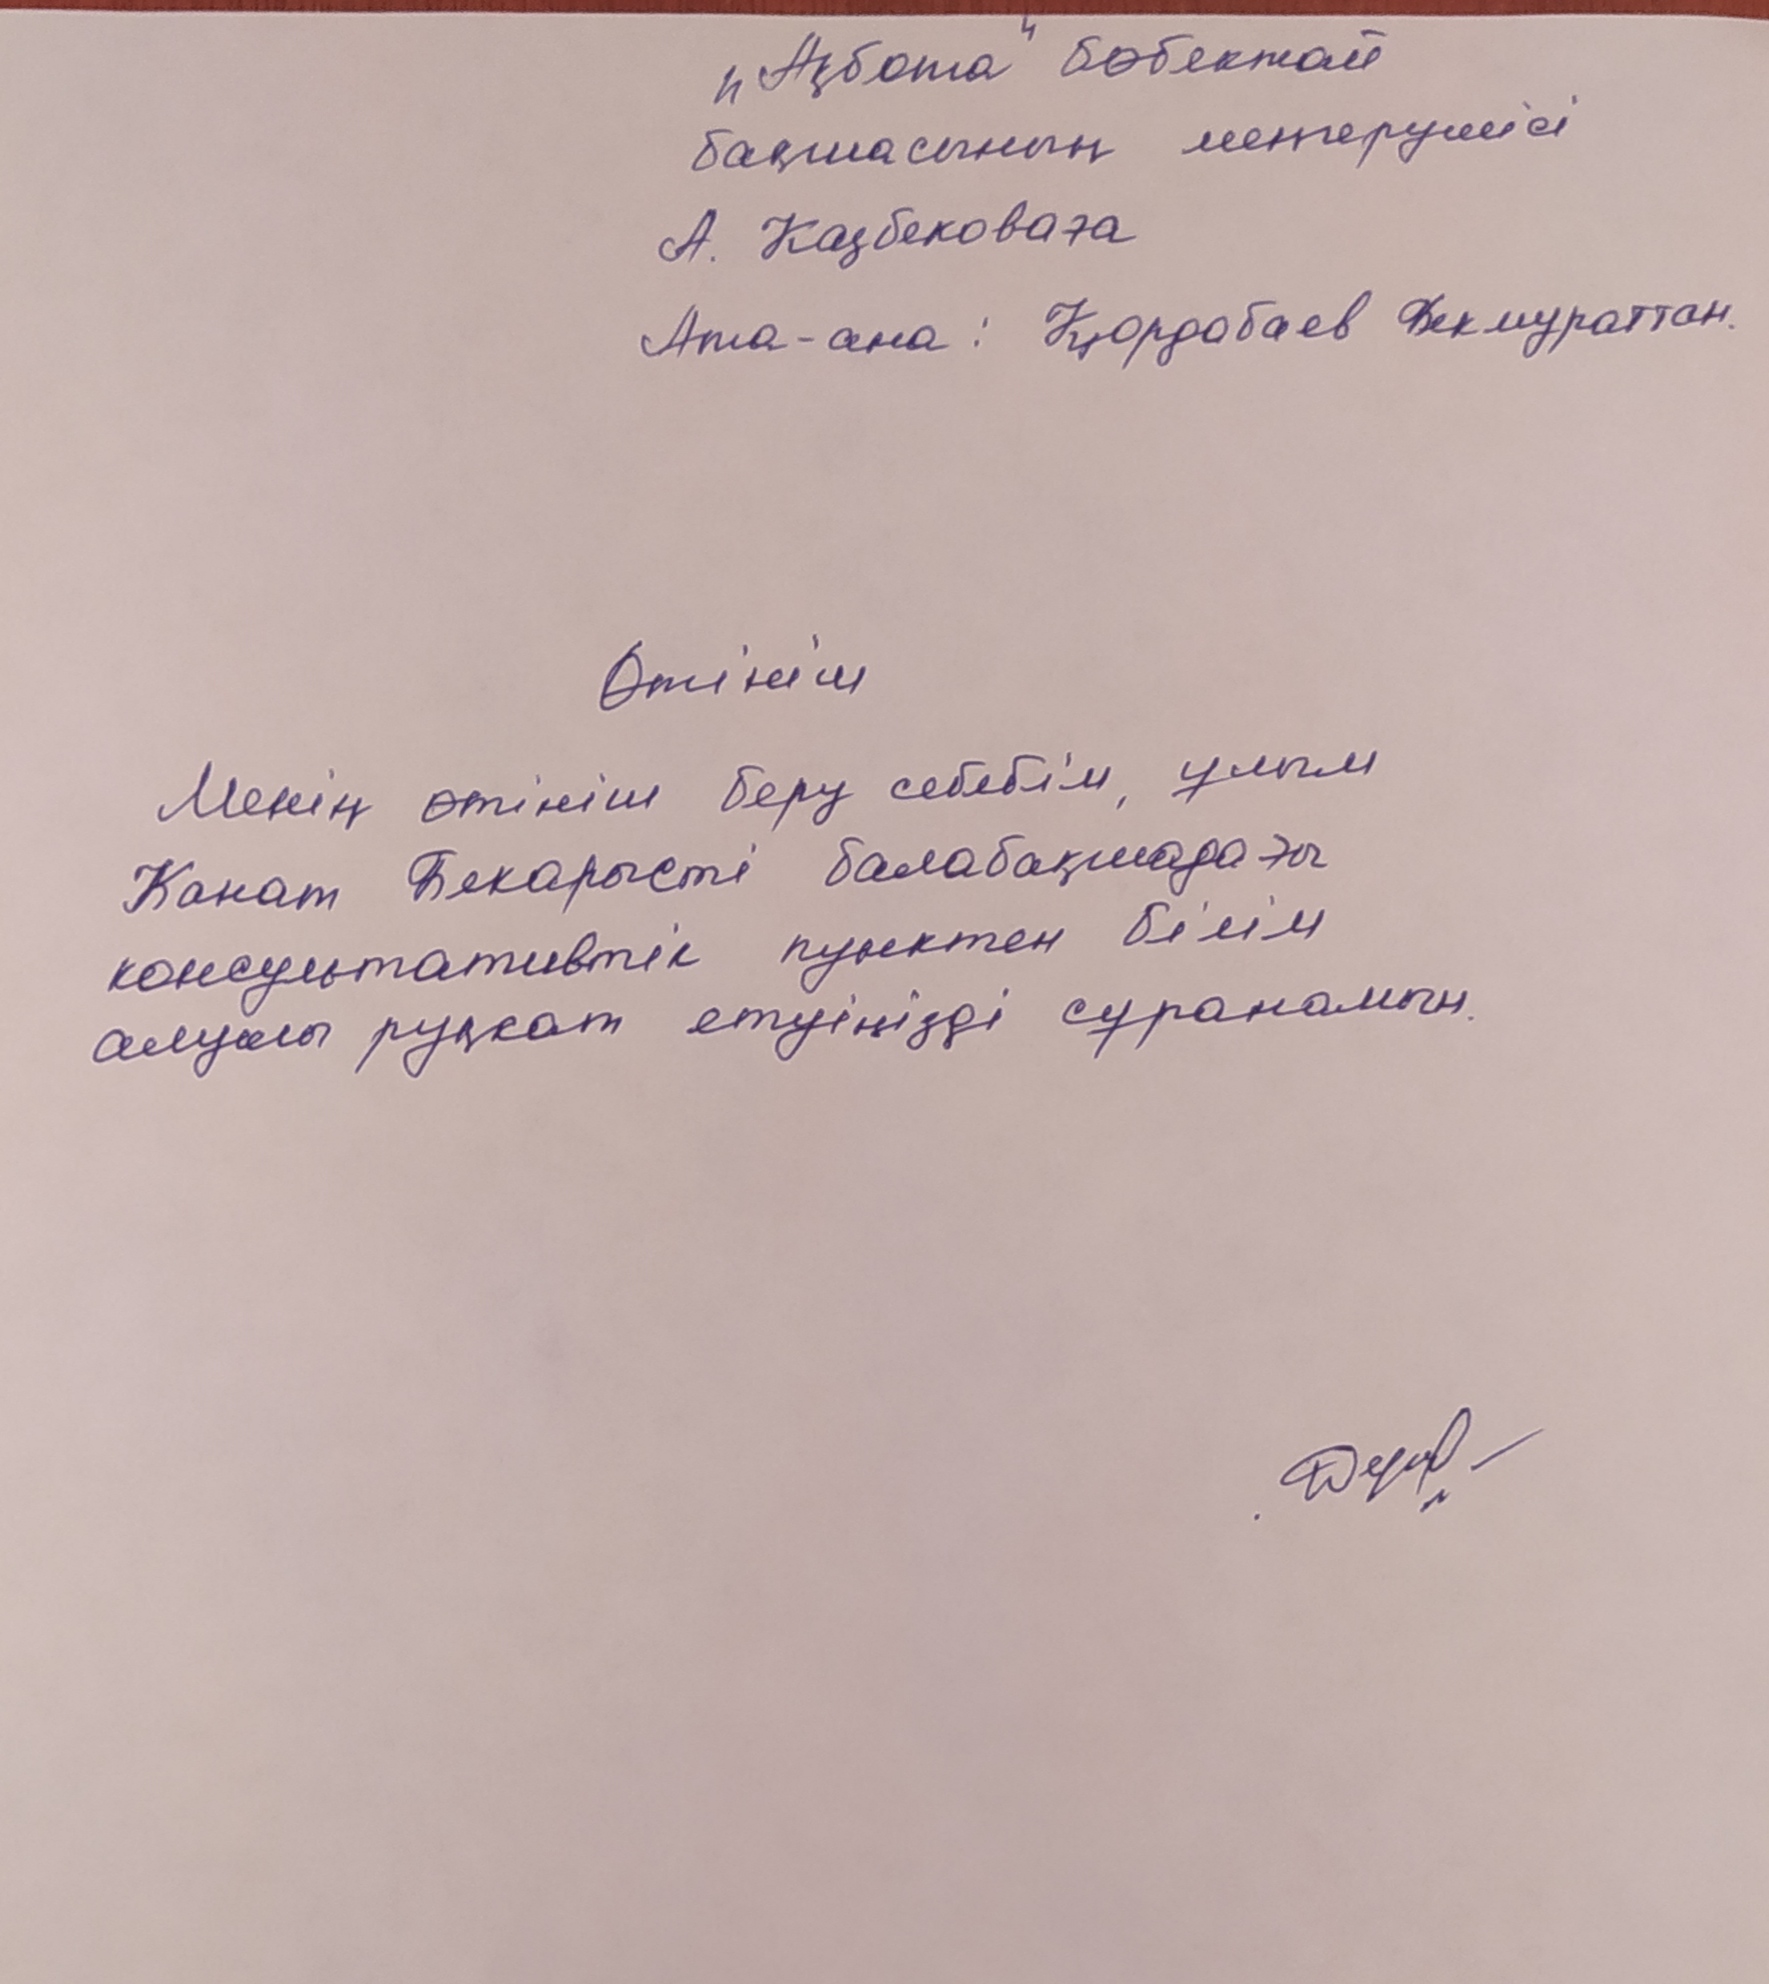 „Ақбота" бөбекжай
бақшасының меңгерушісі
А. Казбековаға
Ата-ана: Қордабаев Бекмураттан.
Өтініш
Менің өтініш беру себебім, ұлым
Канат Бекарысті балабақшадағы
консультативтік пунктен білім
алуы рұқсат етуіңізді сұранамын.